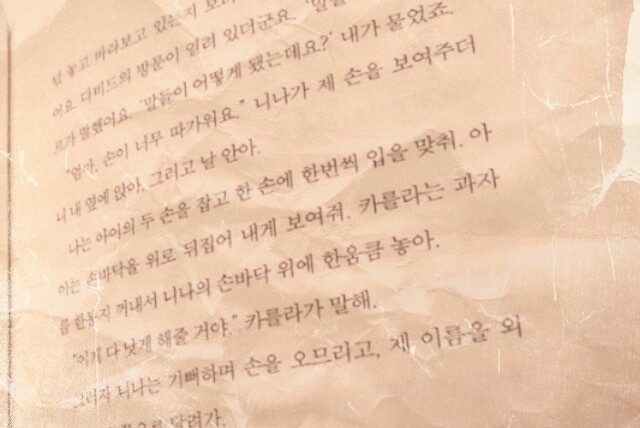 넋 놓고 바라보고 있는지 보려
어요. 다비드의 방문이 열려 있더군요. '말들
'말들이 어떻게 됐는데요?' 내가 물었죠.
"엄마, 손이 너무 따가워요." 니나가 제 손을 보여주더
니 내 옆에 앉아. 그리고 날 안아.
나는 아이의 두 손을 잡고 한 손에 한번씩 입을 맞춰. 아
이는 손바닥을 위로 뒤집어 내게 보여줘. 카를라는 과자
를 한봉지 꺼내서 니나의 손바닥 위에 한움큼 놓아.
"이게 다 낫게 해줄 거야." 카를라가 말해.
그러자 니나는 기뻐하며 손을 오므리고, 제 이름을 외
달려가.